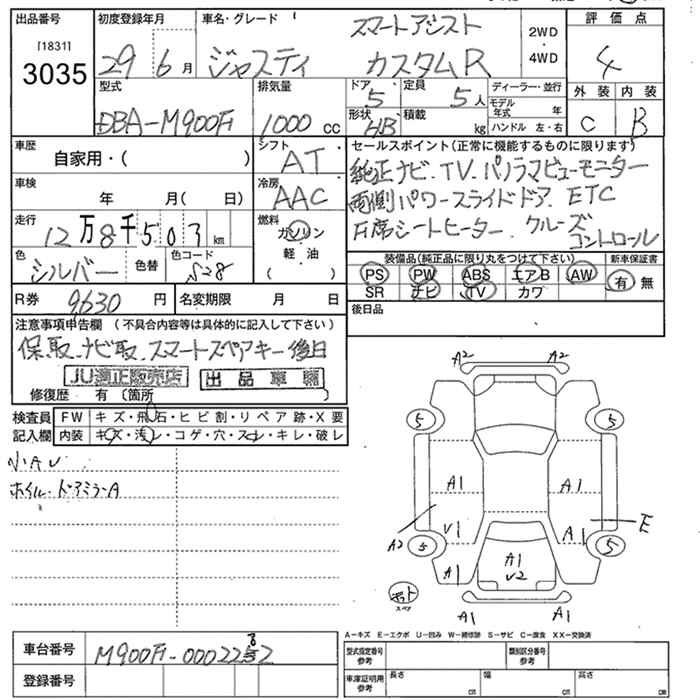 出品番号 初度登録年月 車名・グレード スマートアシスト 2WD・4WD 評価点
[1831]
3035 29 6月 ジャスティ カスタムR 4
型式 排気量 ドア 5 定員 5人 ディーラー・並行 外装 内装
DBA-M900F 1000 cc 形状 HB 積載 kg モデル年式 年 ハンドル 左・右 C B
車歴 自家用・( ) シフト AT セールスポイント(正常に機能するものに限ります)
車検 年 月( 日) 冷房 AAC 純正ナビ.TV.パノラマビューモニター
両側パワースライドドア. ETC
走行 12万8千503km 燃料 ガソリン 軽・油 ( ) 席シートヒーター. クルーズコントロール
色 シルバー 色替 色コード S28 装備品(純正品に限り丸をつけて下さい) 新車保証書
PS PW ABS エアB AW 有 無
R券 9630円 名変期限 月 日 SR ナビ TV カワ
後日品
注意事項申告欄 (不具合内容等は具体的に記入して下さい)
保.取.ナビ取.スマートスペアキー後日
JU適正販売店 出品車輌
修復歴 有 (箇所
検査員 FW キズ・飛石・ヒビ割・リペア跡・X要
記入欄 内装 キズ・汚レ・コゲ・穴・スレ・キレ・破レ
小AU
ホイル.ドアミラーA
A2 A2
5 5
A1 A1
A2 V1 A1 E
5 5
A1 A1
V2
A1
スペア
A1 A1
A-キズ E-エクボ U-凹み W-補修跡 S-サビ C-腐食 XX-交換済
車台番号 M900F-0002282 型式指定番号 参考 類別区分番号 参考
登録番号 車庫証明用 参考 長さ cm 幅 cm 高さ cm